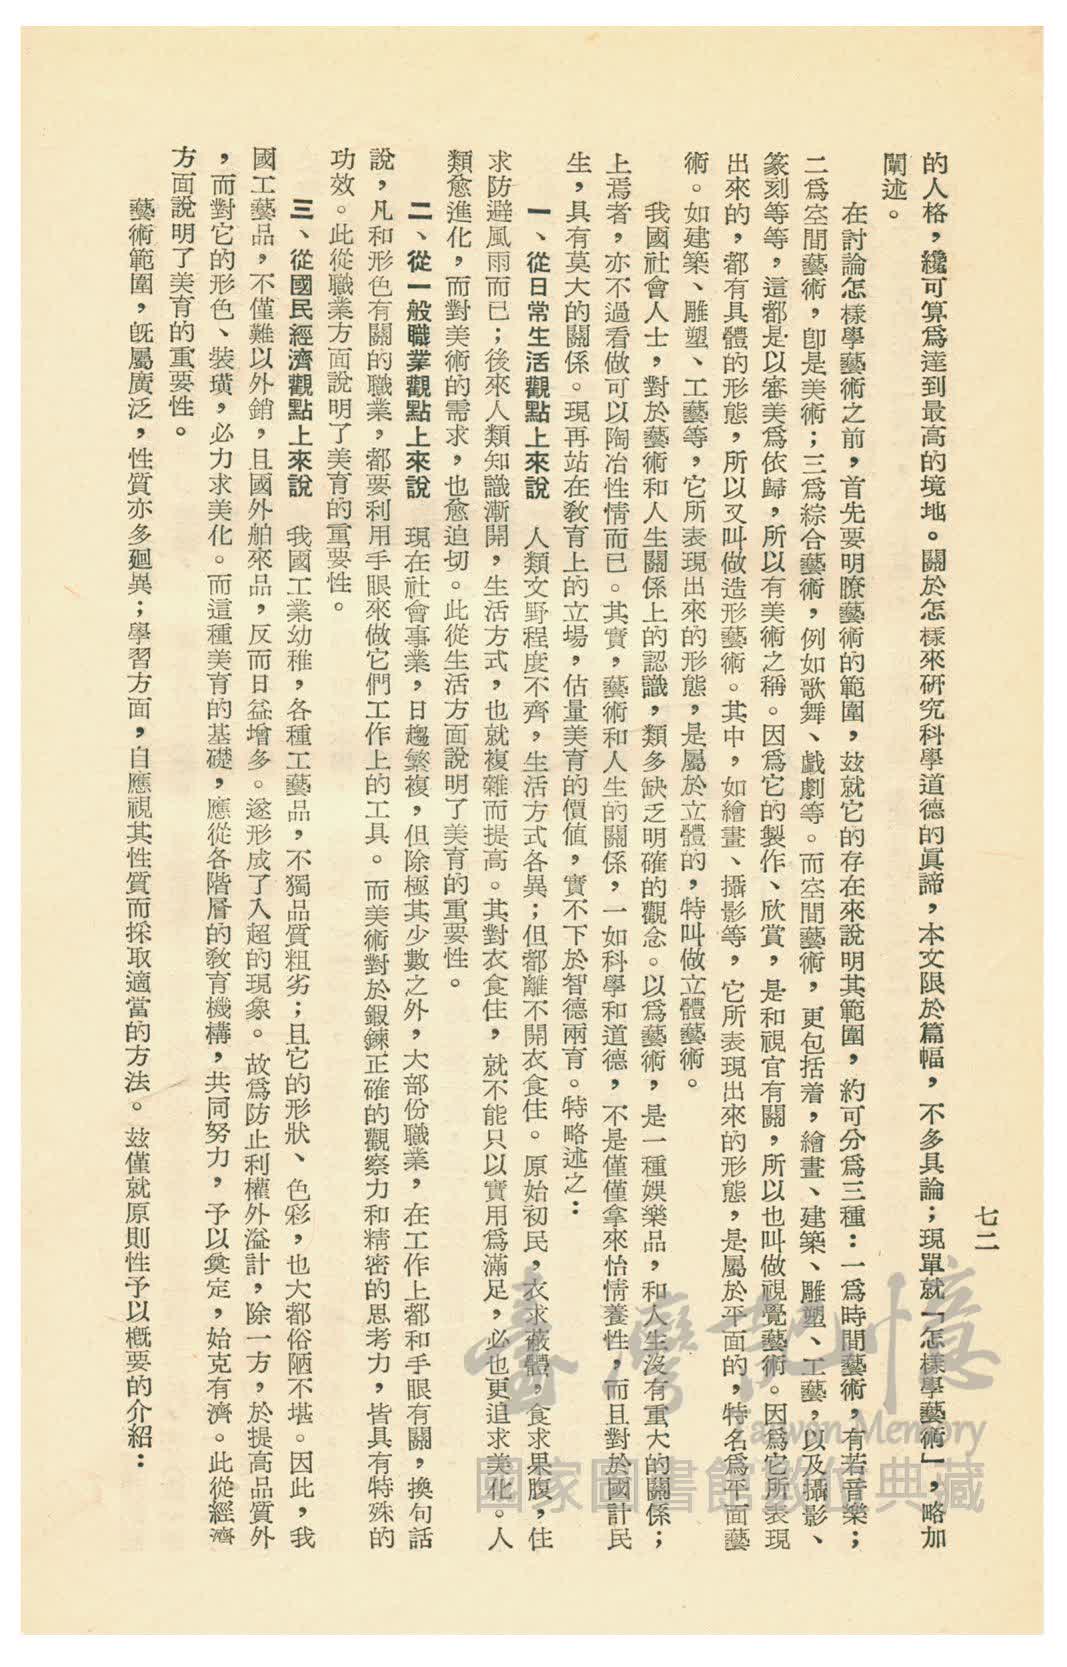 七二
的人格，纔可算爲達到最高的境地。關於怎樣來硏究科學道德的眞諦，本文限於篇幅，不多具論；現單就「怎樣學藝術」，略加
闡述。
在討論怎樣學藝術之前，首先要明瞭藝術的範圍，玆就它的存在來說明其範圍，約可分爲三種：一爲時間藝術，有若音樂；
二爲空間藝術，卽是美術；三爲綜合藝術，例如歌舞、戱劇等。而空間藝術，更包括着，繪畫、建築、雕塑、工藝，以及攝影、
篆刻等等，這都是以審美爲依歸，所以有美術之稱。因爲它的製作、欣賞，是和視官有關，所以也叫做視覺藝術。因爲它所表現
出來的，都有具體的形態，所以又叫做造形藝術。其中，如繪畫、攝影等，它所表現出來的形態，是屬於平面的，特名爲平面藝
術。如建築、雕塑、工藝等，它所表現出來的形態，是屬於立體的，特叫做立體藝術。
我國社會人士，對於藝術和人生關係上的認識，類多缺乏明確的觀念。以爲藝術，是一種娛樂品，和人生沒有重大的關係；
上焉者，亦不過看做可以陶冶性情而已。其實，藝術和人生的關係，一如科學和道德，不是僅僅拿來怡情養性，而且對於國計民
生，具有莫大的關係。現再站在敎育上的立場，估量美育的價値，實不下於智德兩育。特略述之：
一、從日常生活觀點上來說　人類文野程度不齊，生活方式各異；但都離不開衣食住。原始初民，衣求蔽體，食求果腹，住
求防避風雨而已；後來人類知識漸開，生活方式，也就複雜而提高。其對衣食住，就不能只以實用爲滿足，必也更追求美化。人
類愈進化，而對美術的需求，也愈迫切。此從生活方面說明了美育的重要性。
二、從一般職業觀點上來說　現在社會事業，日趨繁複，但除極其少數之外，大部份職業，在工作上都和手眼有關，換句話
說，凡和形色有關的職業，都要利用手眼來做它們工作上的工具。而美術對於鍛鍊正確的觀察力和精密的思考力，皆具有特殊的
功效。此從職業方面說明了美育的重要性。
三、從國民經濟觀點上來說　我國工業幼稚，各種工藝品，不獨品質粗劣；且它的形狀、色彩，也大都俗陋不堪。因此，我
國工藝品，不僅難以外銷，且國外舶來品，反而日益增多。遂形成了入超的現象。故爲防止利權外溢計，除一方，於提高品質外
，而對它的形色、裝璜，必力求美化。而這種美育的基礎，應從各階層的敎育機構，共同努力，予以奠定，始克有濟。此從經濟
方面說明了美育的重要性。
藝術範圍，旣屬廣泛，性質亦多廻異；學習方面，自應視其性質而採取適當的方法。玆僅就原則性予以槪要的介紹：
臺灣記憶
Taiwan Memory
國家圖書館數位典藏